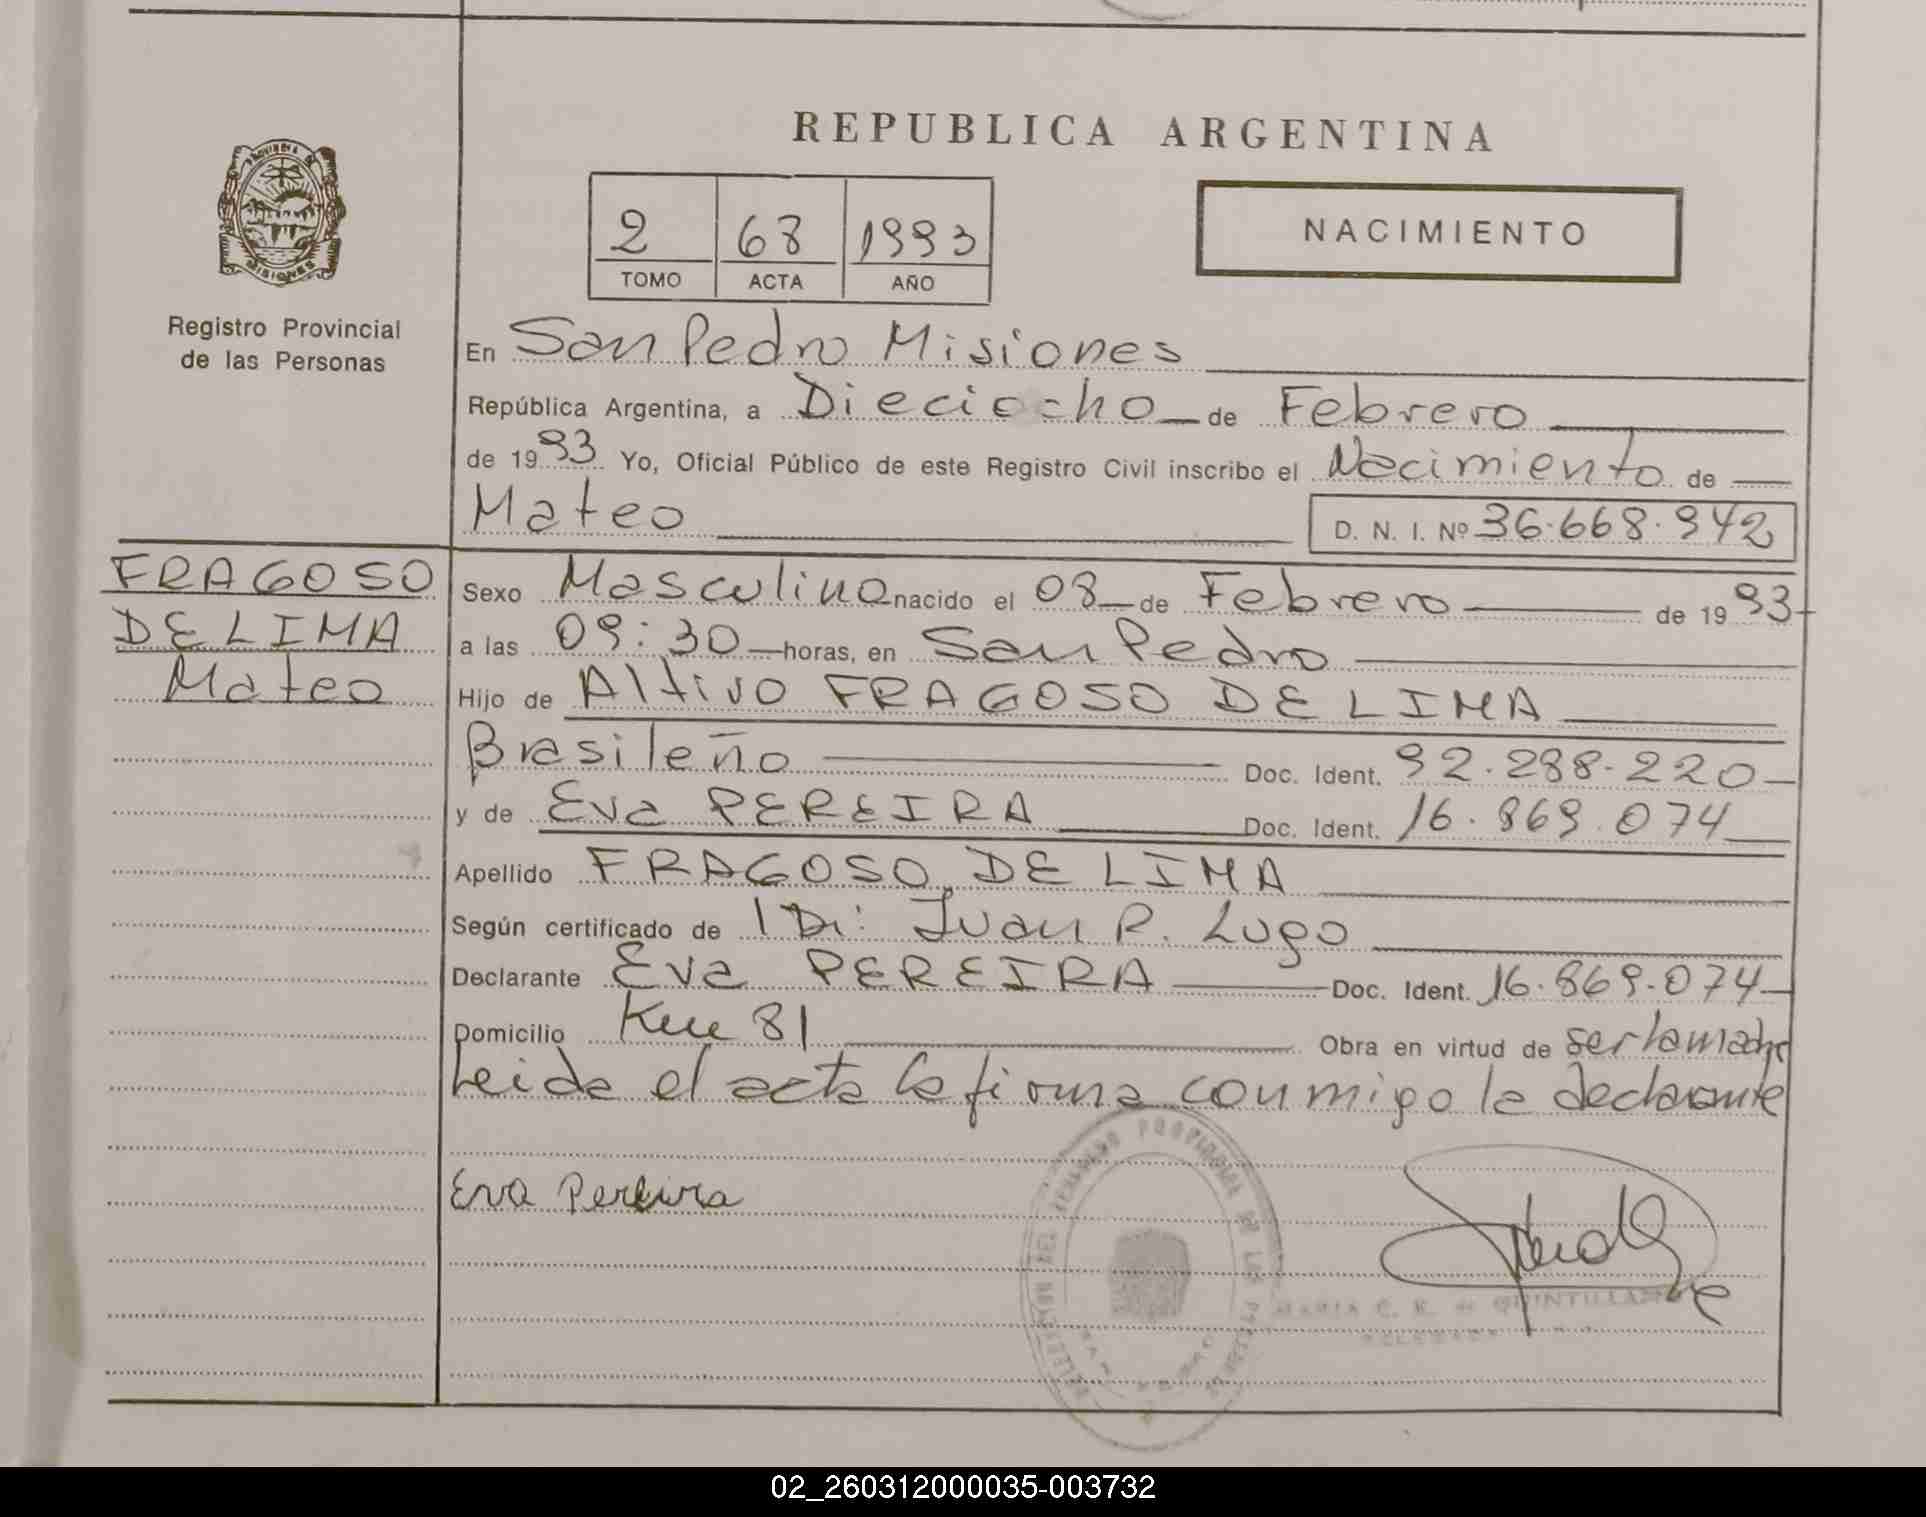 REPUBLICA ARGENTINA
PROVINCIA DE
MISIONES
Registro Provincial
de las Personas
2 68 1993
TOMO ACTA AÑO
NACIMIENTO
En San Pedro Misiones
República Argentina, a Dieciocho de Febrero
de 1993 Yo, Oficial Público de este Registro Civil inscribo el Nacimiento de
Mateo D. N. I. Nº 36.668.942
FRAGOSO
DE LIMA
Mateo
Sexo Masculino nacido el 08 de Febrero de 1993
a las 09:30 horas, en San Pedro
Hijo de Altivo FRAGOSO DE LIMA
Brasileño Doc. Ident. 92.288.220
y de Eva PEREIRA Doc. Ident. 16.869.074
Apellido FRAGOSO DE LIMA
Según certificado de Dr: Juan R. Lugo
Declarante Eva PEREIRA Doc. Ident. 16.869.074
Domicilio Km 81 Obra en virtud de ser la madre
Leida el acta la firma conmigo la declarante
Eva Pereira
MARIA C. R. de QUINTILLAN
02_260312000035-003732